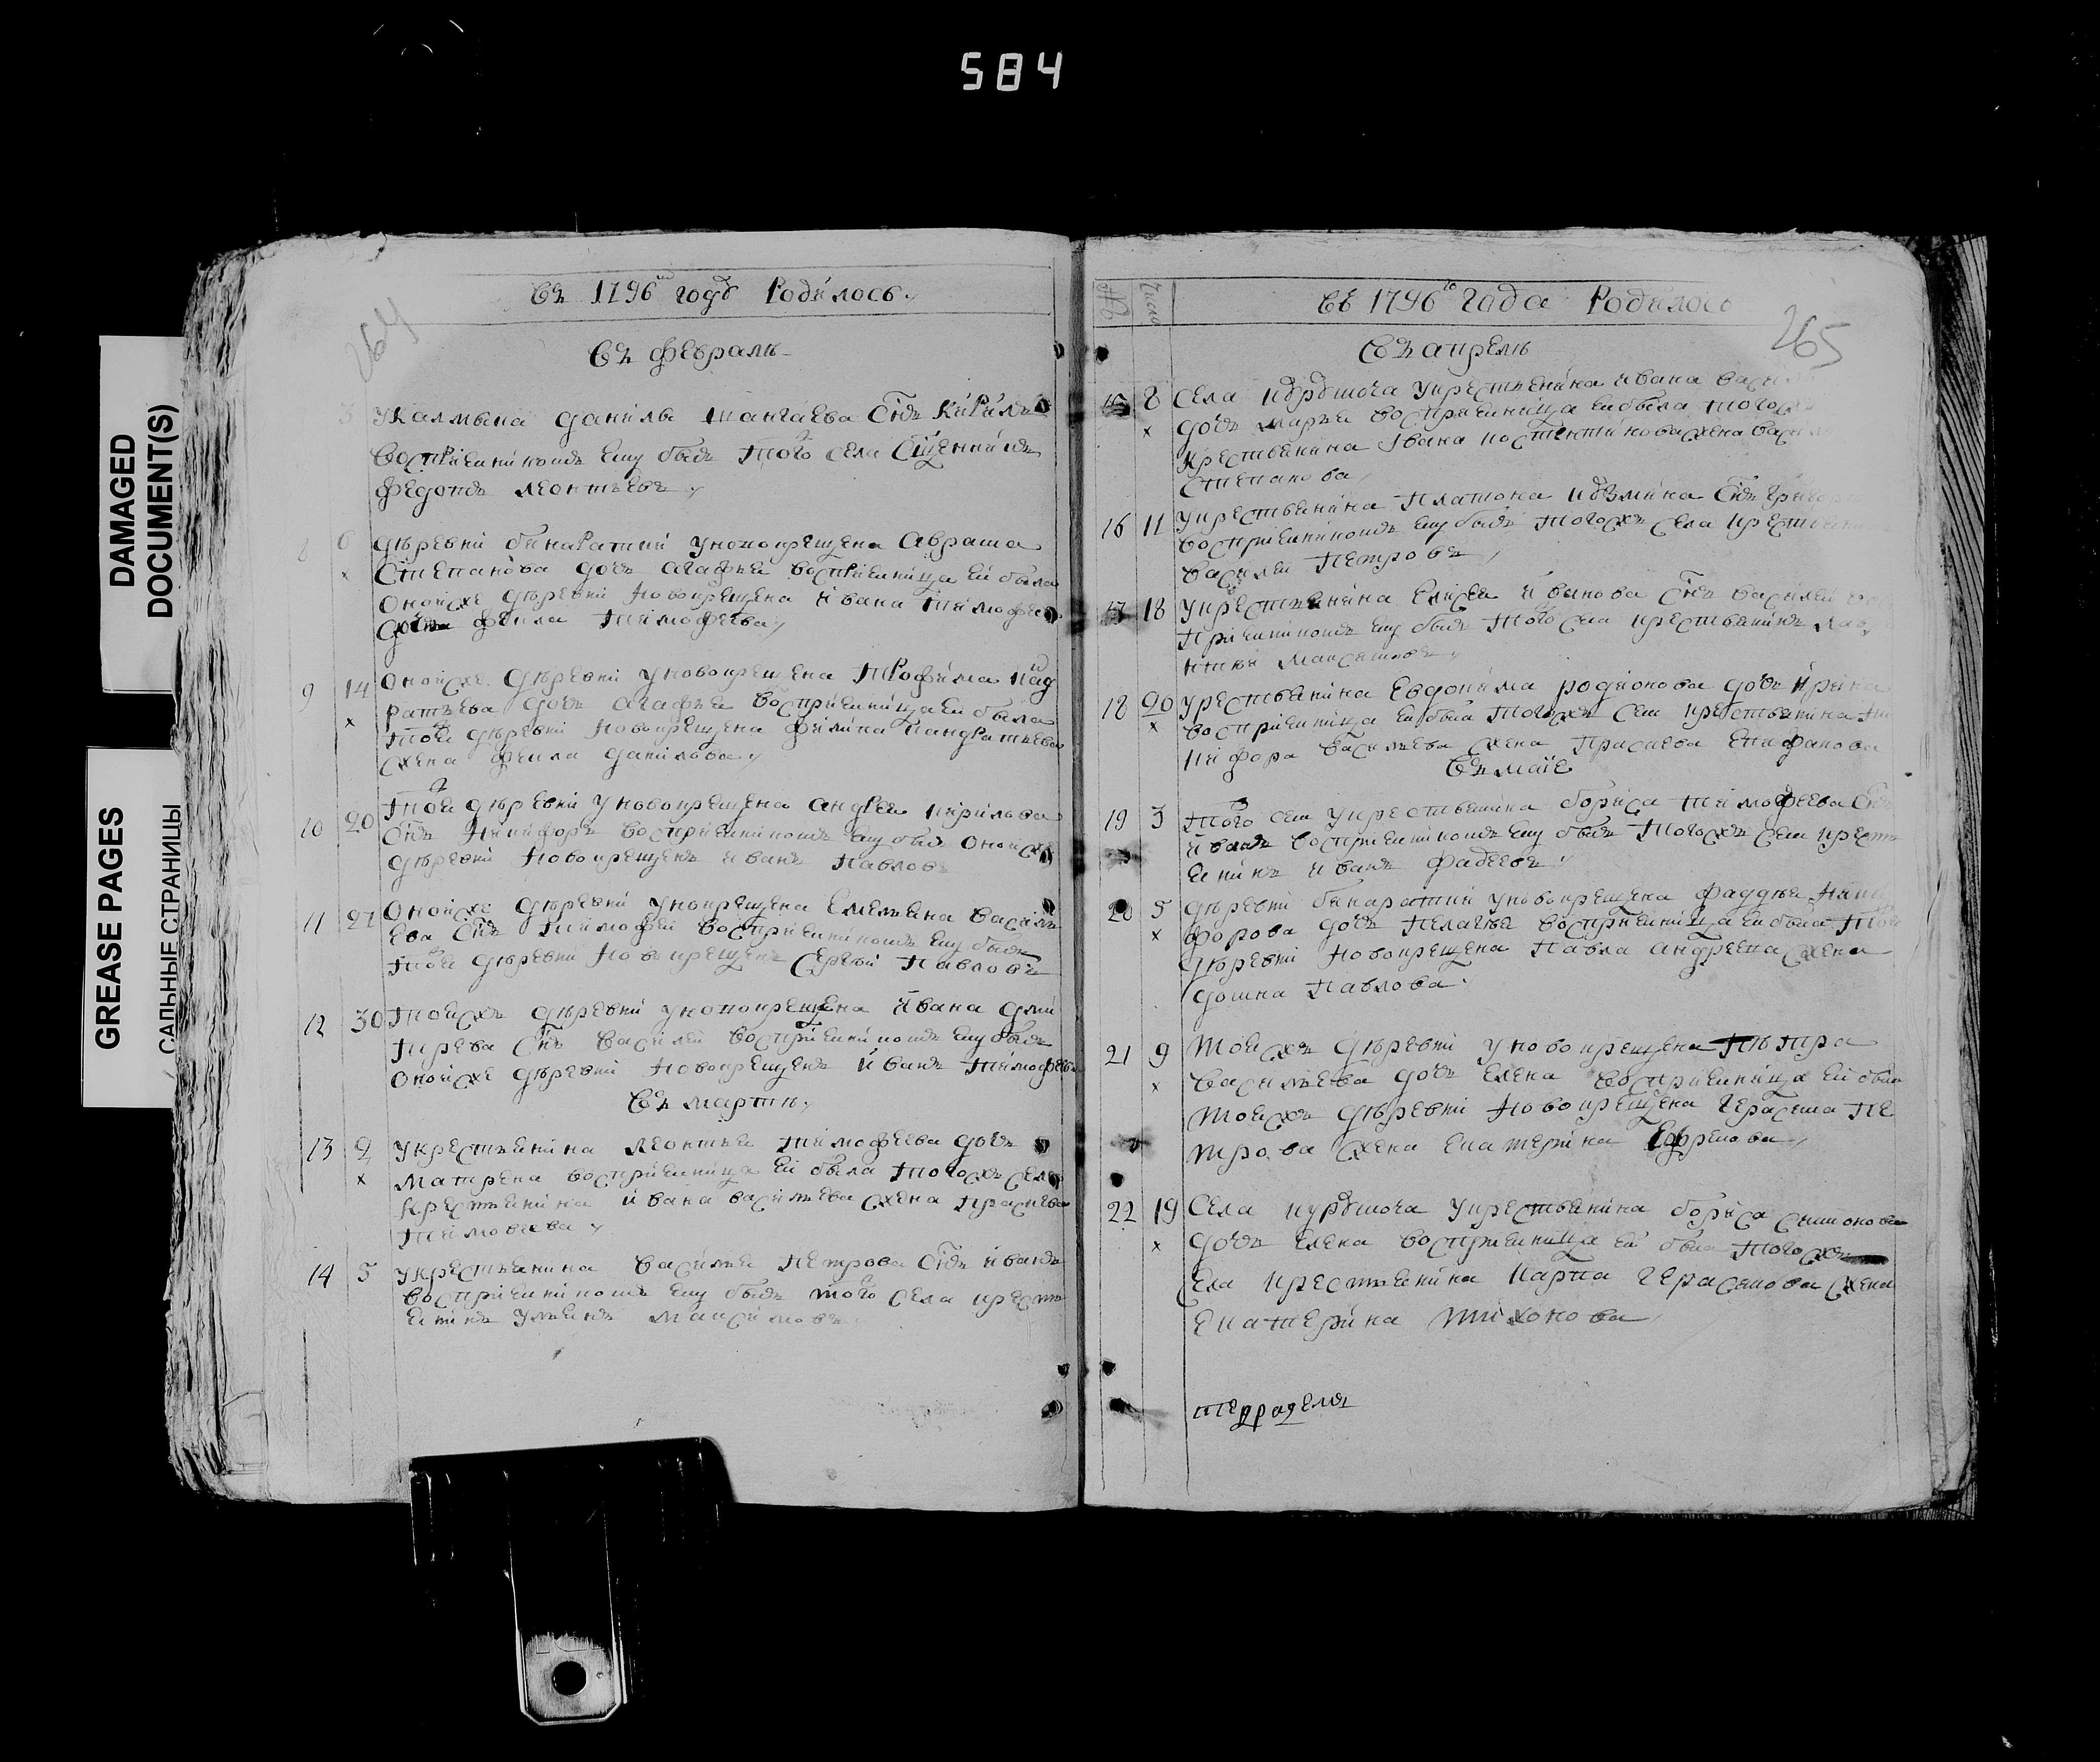 584
DAMAGED
DOCUMENT(S)
GREASE PAGES
САЛЬНЫЕ СТРАНИЦЫ
264
въ 1796м годѣ Родилось
въ февралѣ
3 У Калмыка Данилы Шангаева сынъ Кирилъ
воспрiемникомъ ему былъ того села Сщенникъ
Федотъ Леонтьевъ
8 6 деревни бикаратки у новокрещена Аврама
Степанова дочь Агафья воспрiемница ей была
оной же деревни новокрещена Ивана Тимофее
жена Фекла Тимофеева
9 14 оной же деревни у новокрещена Трофима Кад
ратьева дочь Агафья воспрiемница ей была
той деревни новокрещена Филипа Кандратьева
жена Фекла Данилова
10 20 той деревни у новокрещена Андрея Кирилова
сынъ Никифоръ воспрiемникомъ ему былъ оной же
деревни новокрещенъ Иванъ Павловъ
11 27 оной же деревни у нокрещена Емельяна Василь
ева сынъ Тимофей воспрiемникомъ ему былъ
той деревни новокрещенъ Сергей Павловъ
12 30 той жъ деревни у новокрещена Ивана Дми
тирева сынъ Василей воспрiемникомъ ему былъ
оной же деревни новокрещенъ Иванъ Тимофеевъ
въ мартѣ
13 2 у крестьянина Леонтья Тимофеева дочь
Матрена воспрiемница ей была того жъ села
крестьянина Ивана Васильева жена Прасковья
Тимофеева
14 5 у крестьянина Василья Петрова сынъ Иванъ
воспрiемникомъ ему былъ того села крест
янинъ Ульянъ Максимовъ
265
№ Число
въ 1796го года Родилось
въ апрелѣ
15 8 села у крестьянина Ивана
дочь Марья воспрiемница ей была того
крестьянина Ивана Костентинова жена
Степанова
16 11 у крестьянина Платона Кузмина сынъ
воспрiемникомъ ему былъ того жъ села
Василей Петровъ
17 18 у крестьянина Елисея Иванова сынъ Василей
прiемникомъ ему былъ того села крестьянинъ
Максимовъ
18 20 у рестьянина Евдокима Родионова дочь Ирина
воспрiемница ей была того жъ села крестьянина
кифора Васильева жена Прасковья Епифанова
въ маiе
19 3 того села у крестьянина Бориса Тимофеева сынъ
Иванъ воспрiемникомъ ему былъ того жъ села крест
янинъ Иванъ Фадеевъ
20 5 деревни бикаратки у новокрещена Фаддея Ники
форова дочь Пелагея воспрiемница ей была той
деревни новокрещена Павла Андреева жена
Домна Павлова
21 9 той жъ деревни у новокрещена Петра
Васильева дочь Елена воспрiемница ей была
той жъ деревни новокрещена Герасима Пе
трова жена Екатерина Ефремова
22 19 села у крестьянина Бориса Симонова
дочь Елена воспрiемница ей была того жъ
села крестьянина Карпа Герасемова жена
Екатерина Тихонова